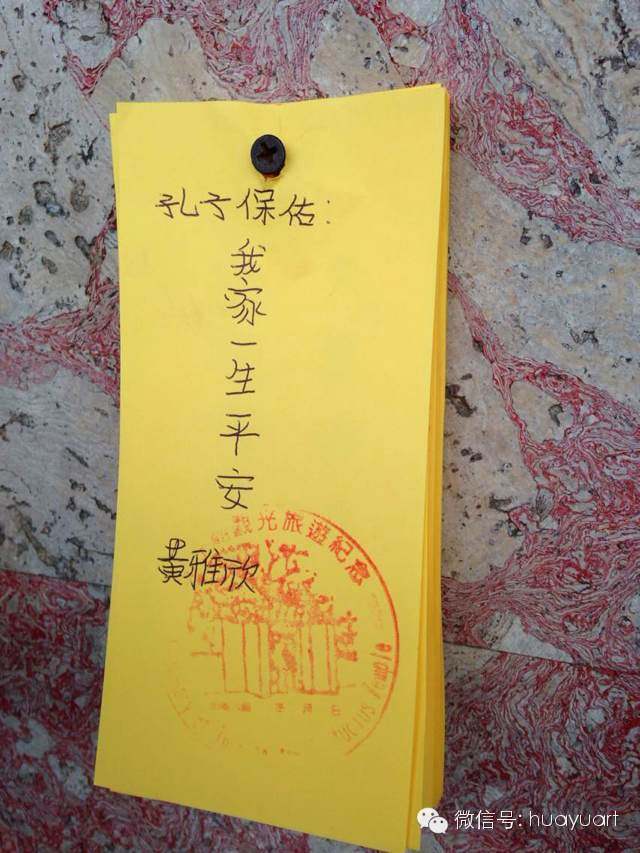 孔子保佑：
我家一生平安
黃雅欣
觀光旅遊紀念
Temple
微信号: huayuart